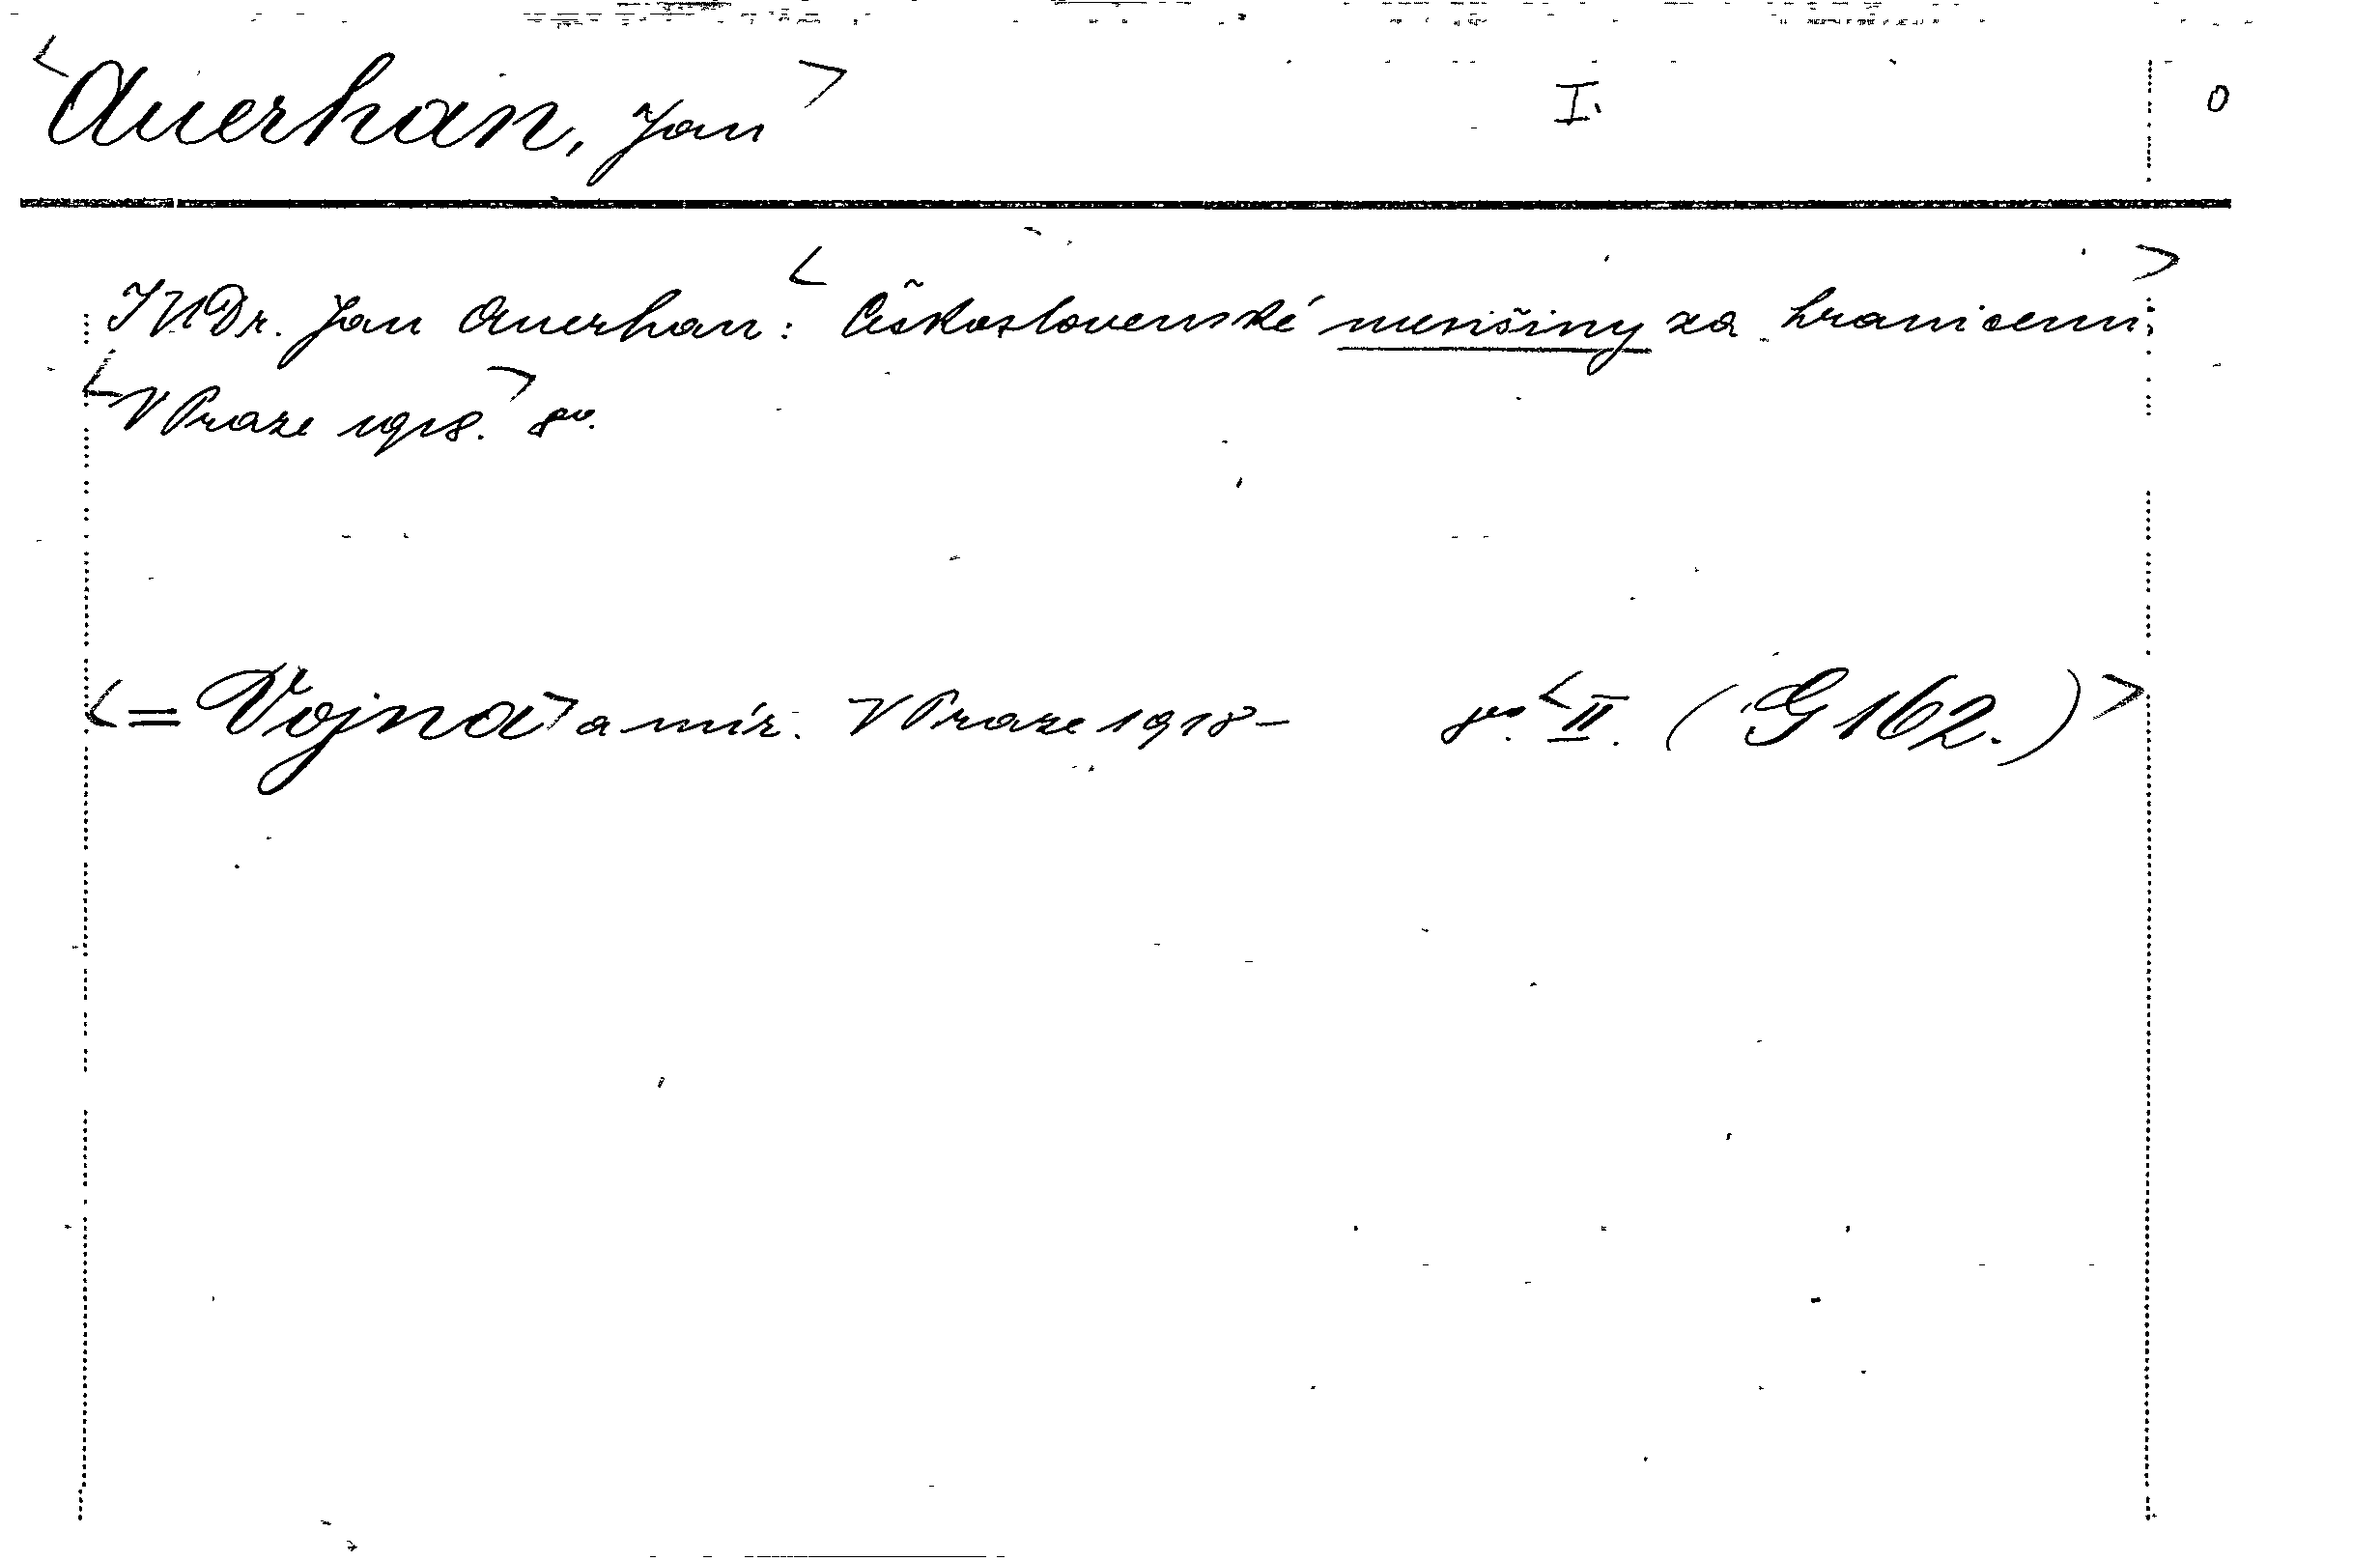 <Auerhan, Jan> I. 0
JUDr. Jan Auerhan: <Československé menšiny za hranicemi.>
<V Praze 1918.> 8º.
<= Vojna> a mír. V Praze 1918- 8º. <II. (G 162.)>